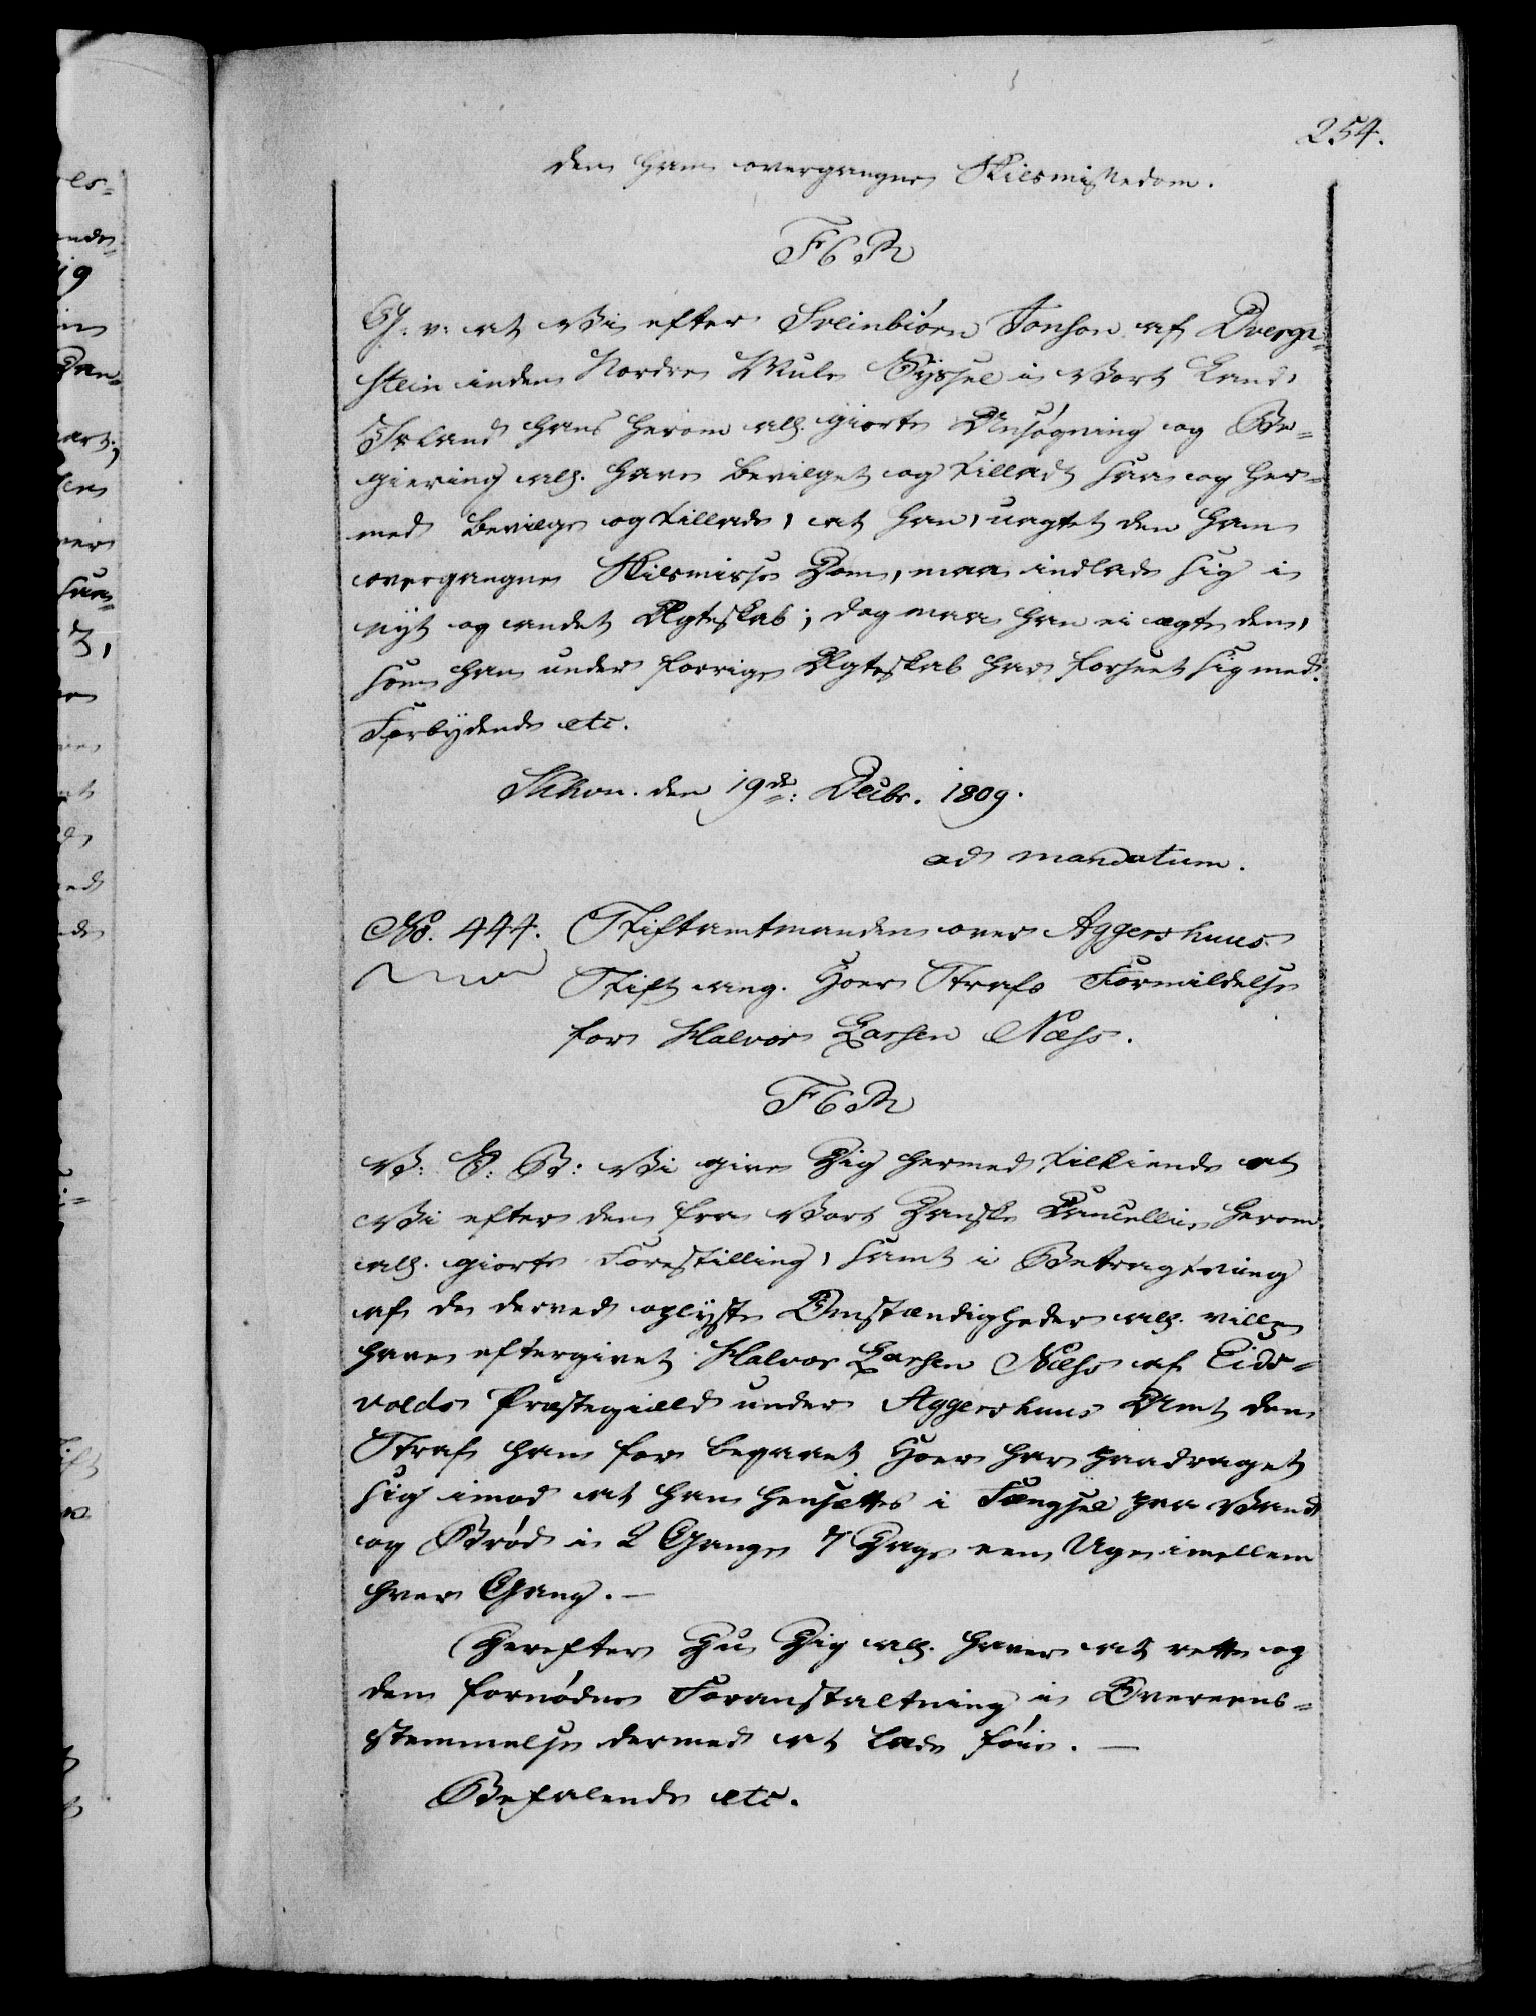 254.
den ham overgangne Skilsmissedom.
F6R
G. v. at Vi efter Sveinbiörn Jonson af Dverga-
stein inden Nordre Mule Syssel i Vort Land
Island hans herom all. giorte Ansögning og Be-
giering all. have bevilget og tilladt saa og her-
med bevilge og tillade, at han, uagtet den ham
overgangne Skilsmisse Dom, maa indlade sig i
nyt og andet Ægteskab; dog maa han ei ægte den,
som han under forrige Ægteskab har forseet sig med.
Forbydende etc.
Kkbvn. den 19de: Decbr. 1809.
ad mandatum.
No. 444. Stiftamtmanden over Aggershuus
Stift ang. Hoers Strafs Formildelse
for Halvor Larsen Næss.
F6R
V: G: B: Vi give Dig hermed tilkiende at
Vi efter den fra Vort Danske Cancellie herom
all. giorte Forestilling, samt i Betragtning
af de derved oplyste Omstændigheder all. ville
have eftergivet Halvor Larsen Næss af Eids-
volds Præstegield under Aggershuus Amt den
Straf han for begaaet Hoer har paadraget
sig imod at han hensættes i Fængsel paa Vand
og Bröd i 2 Gange 7 Dage een Uge imellem
hver Gang. —
Herefter Du Dig all. haver at rette og
den fornödne Foranstaltning i Overeens-
stemmelse dermed at lade föie. —
Befalende etc.